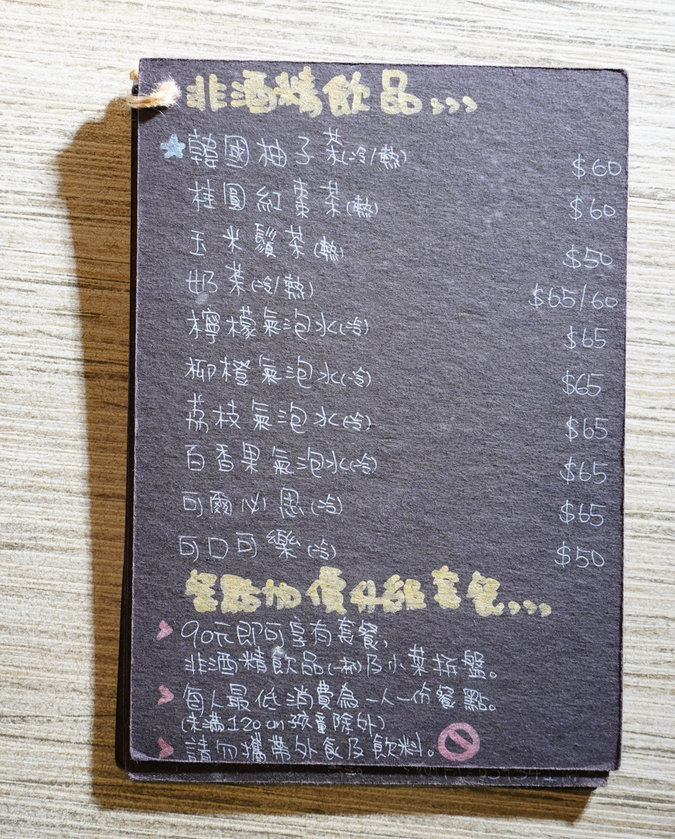 非酒精飲品,,,
★韓國柚子茶(冷/熱) $60
桂圓紅棗茶(熱) $60
玉米鬚茶(熱) $50
奶茶(冷/熱) $65/60
檸檬氣泡水(冷) $65
柳橙氣泡水(冷) $65
荔枝氣泡水(冷) $65
百香果氣泡水(冷) $65
可爾必思(冷) $65
可口可樂(冷) $50
餐點加價升級套餐,,,,
90元即可享有套餐,
非酒精飲品(一杯)及小菜拼盤。
每人最低消費為一人一份餐點。
(未滿120cm孩童除外)
請勿攜帶外食及飲料。